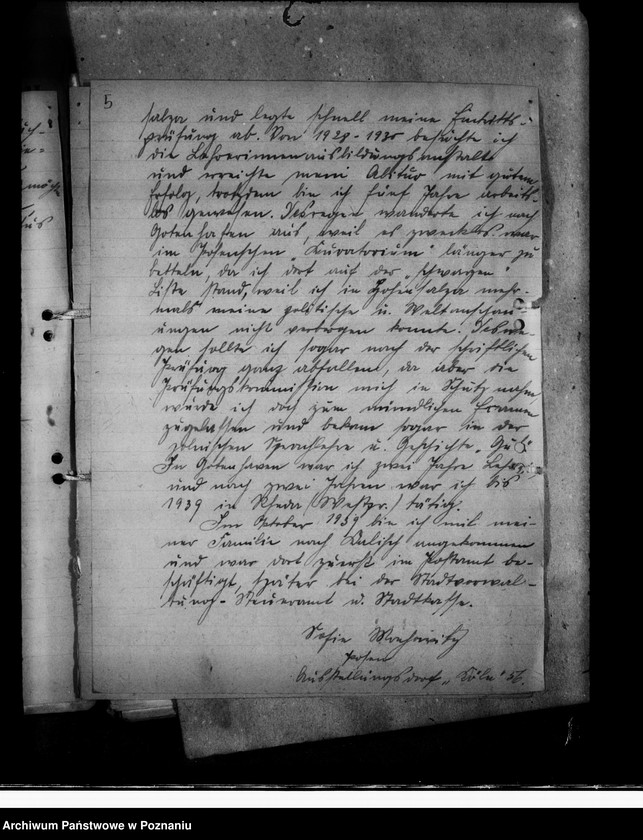 5
salza und legte schnell meine Eintritts-
prüfung ab. Von 1928-1935 besuchte ich
die Lehrerinnenausbildungsanstalt
und erreichte mein Abitur mit gutem
Erfolg, trotzdem bin ich fünf Jahre arbeits-
los gewesen. Deswegen wanderte ich nach
Gotenhafen aus, weil es zwecklos war
im Posenschen „Kuratorium" länger zu
betteln, da ich dort auf der „schwarzen"
Liste stand, weil ich in Hohensalza mehr-
mals meine politische u. Weltanschau-
ungen nicht verbergen konnte. Deswe-
gen sollte ich sogar nach der schriftlichen
Prüfung ganz abfallen, da aber die
Prüfungskommission mich in Schutz nahm
wurde ich doch zum mündlichen Examen
zugelassen und bekam sogar in der
polnischen Sprachlehre u. Geschichte „Gut".
In Gotenhaven war ich zwei Jahre
und nach zwei Jahren war ich bis
1939 in Rheda (Westpr.) tätig.
Im Oktober 1939 bin ich mit mei-
ner Familie nach Kalisch angekommen
und war dort zuerst im Postamt be-
schäftigt, später bei der Stadtverwal-
tung-Steueramt u. Stadtkasse.
Sofie
Posen
Ausstellungsdorf „Köln"
Archiwum Państwowe w Poznaniu